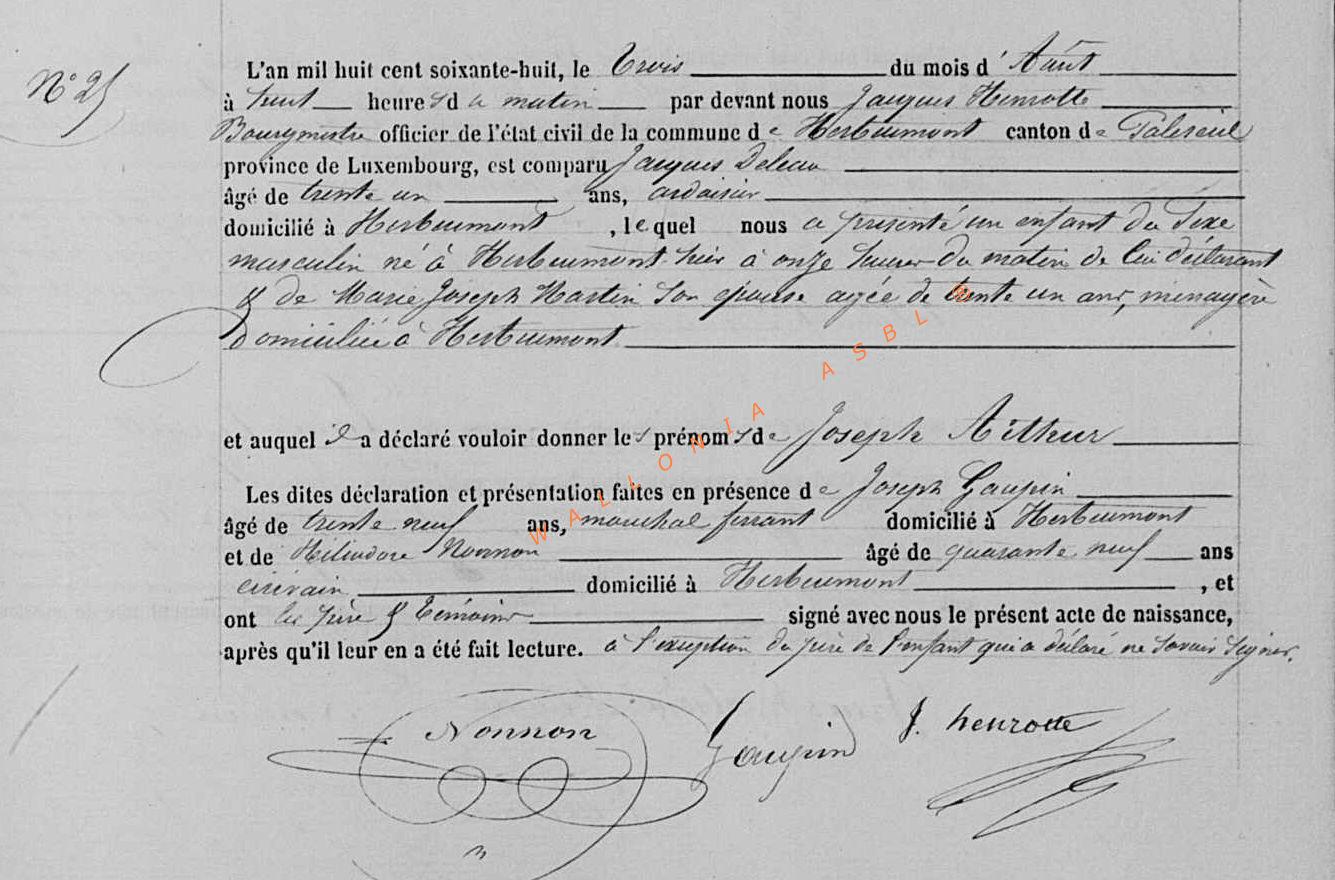 N° 25
L'an mil huit cent soixante-huit, le Trois du mois d' Août
à huit heures du matin par devant nous Jacques Henrotte
Bourgmestre officier de l'état civil de la commune de Herbeumont canton de Paliseul
province de Luxembourg, est comparu Jacques Deleau
âgé de trente un ans, ardoisier
domicilié à Herbeumont, lequel nous a présenté un enfant du Sexe
masculin né à Herbeumont hier à onze heures du matin de lui déclarant
& de Marie Joseph Martin son épouse agée de trente un ans, ménagère
Domiciliée à Herbeumont
et auquel il a déclaré vouloir donner les prénoms de Joseph Arthur
Les dites déclaration et présentation faites en présence de Joseph Gaupin
âgé de trente neuf ans, maréchal ferrant domicilié à Herbeumont
et de Héliodore Nonnon âgé de quarante neuf ans
écrivain domicilié à Herbeumont, et
ont les père & témoins signé avec nous le présent acte de naissance,
après qu'il leur en a été fait lecture. à l'exception du père de l'enfant qui a déclaré ne savoir signer.
Nonnon Gaupin J. henrotte
WALLONIA ASBL ®